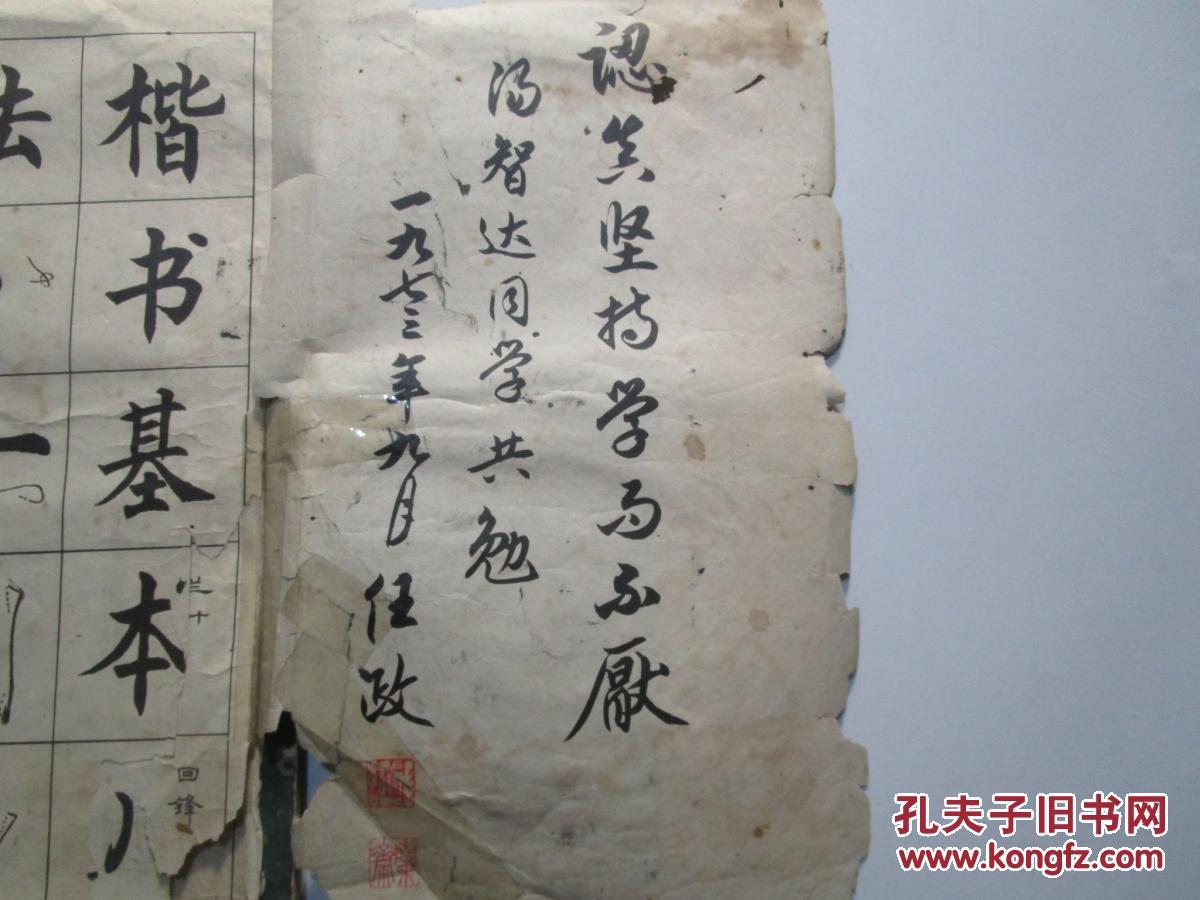 認真坚持学而不厭
汤智达同学共勉
一九七三年九月 任政
楷书基本
法
一
回鋒
孔夫子旧书网
www.kongfz.com